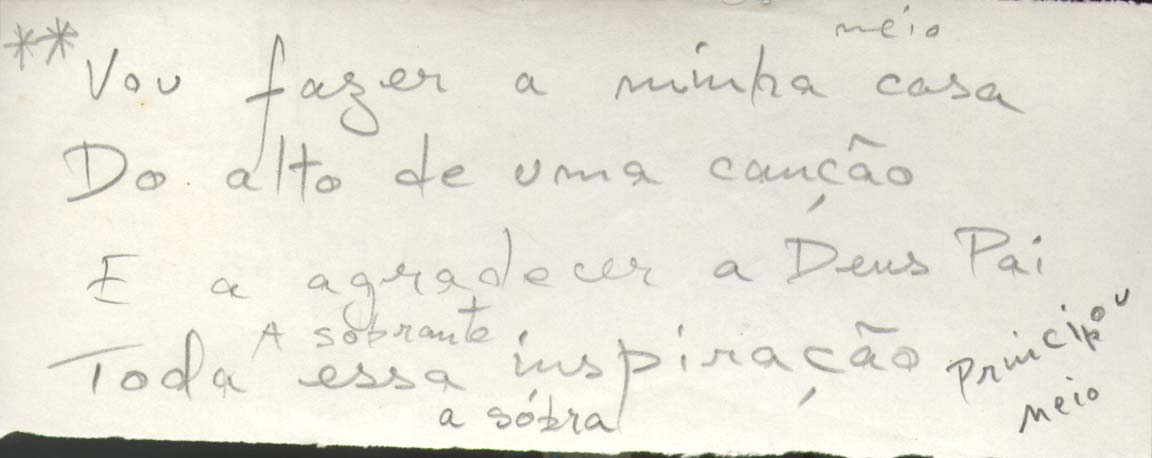 meio
** Vou fazer a minha casa
Do alto de uma canção
E a agradecer a Deus Pai
A sobrante
Toda essa inspiração
a sóbra
Principo ou
meio